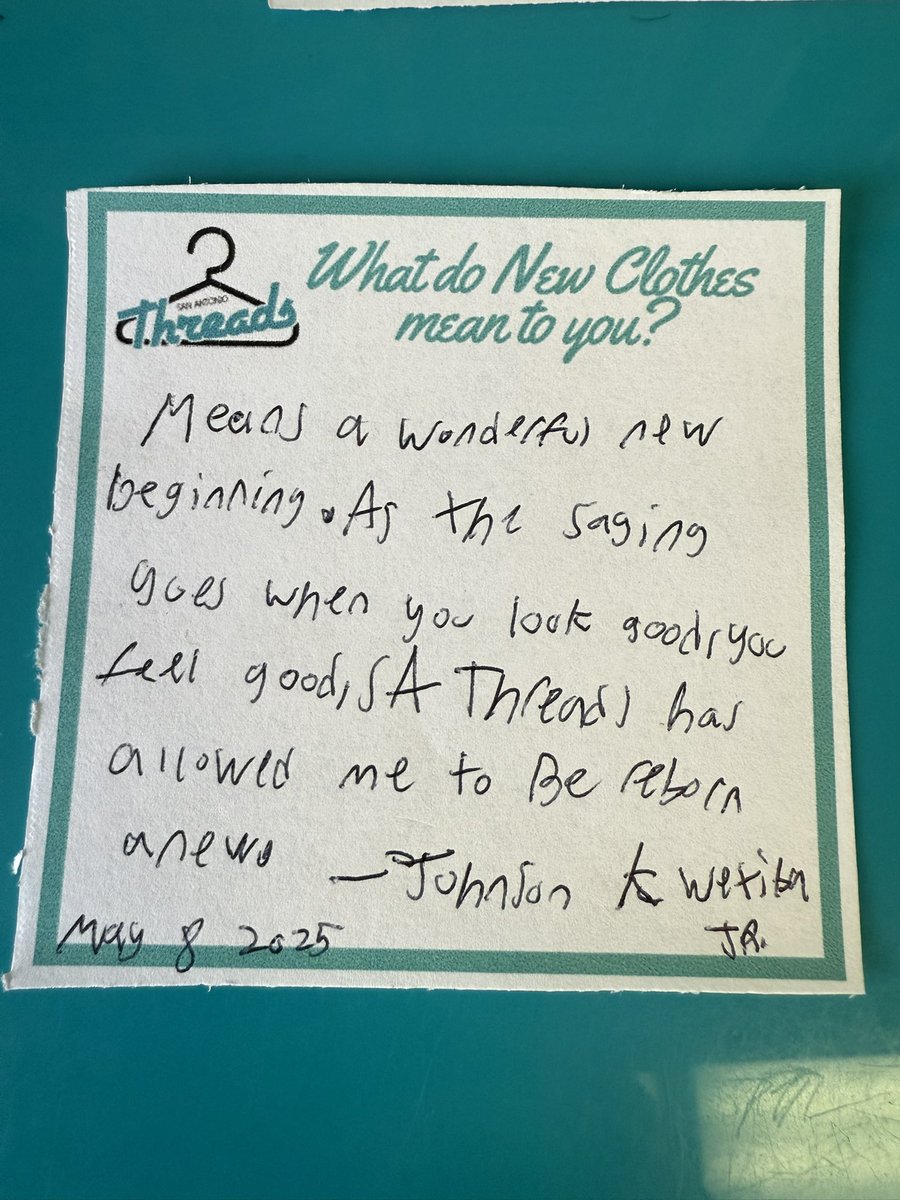 SAN ANTONIO
Threads
What do New Clothes
mean to you?
Means a wonderful new
beginning. As the saging
goes when you look good, you
feel good, SA Threads has
allowed me to Be reborn
anew.
— Johnson
JR.
May 8 2025